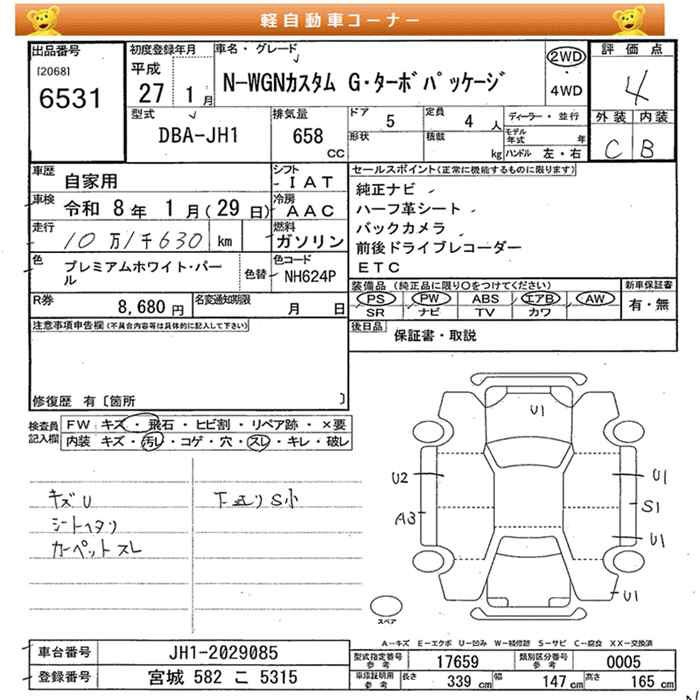 軽自動車コーナー
出品番号
[2068]
6531
初度登録年月
平成
27 1月
車名・グレード
N-WGNカスタム G・ターボパッケージ
2WD
・
4WD
評価点
4
外装 内装
C B
型式
DBA-JH1
排気量
658
CC
ドア
5
定員
4 人
形状
積載
kg
ディーラー・並行
モデル年式 年
ハンドル 左・右
車歴
自家用
シフト
IAT
車検
令和 8年 1月(29日)
冷房
AAC
走行
10万1千630 km
燃料
ガソリン
色
プレミアムホワイト・パール
色替
色コード
NH624P
R券
8,680円
名変通知期限
月 日
セールスポイント(正常に機能するものに限ります)
純正ナビ
ハーフ革シート
バックカメラ
前後ドライブレコーダー
ETC
装備品 (純正品に限り○をつけてください)
PS PW ABS エアB AW
SR ナビ TV カワ
新車保証書
有・無
後日品
保証書・取説
注意事項申告欄(不具合内容等は具体的に記入して下さい)
修復歴 有〔箇所 〕
検査員記入欄
FW キズ・飛石・ヒビ割・リペア跡・×要
内装 キズ・汚レ・コゲ・穴・スレ・キレ・破レ
キズU
シートヘタリ
カーペットスレ
下廻りS小
U1
U2
A3
U1
S1
U1
U1
スペア
A−キズ E−エクボ U−凹み W−補修跡 S−サビ C−腐食 XX−交換済
車台番号
JH1-2029085
登録番号
宮城 582 こ 5315
型式指定番号 参考
17659
類別区分番号 参考
0005
車庫証明用 参考
長さ 339 cm 幅 147 cm 高さ 165 cm